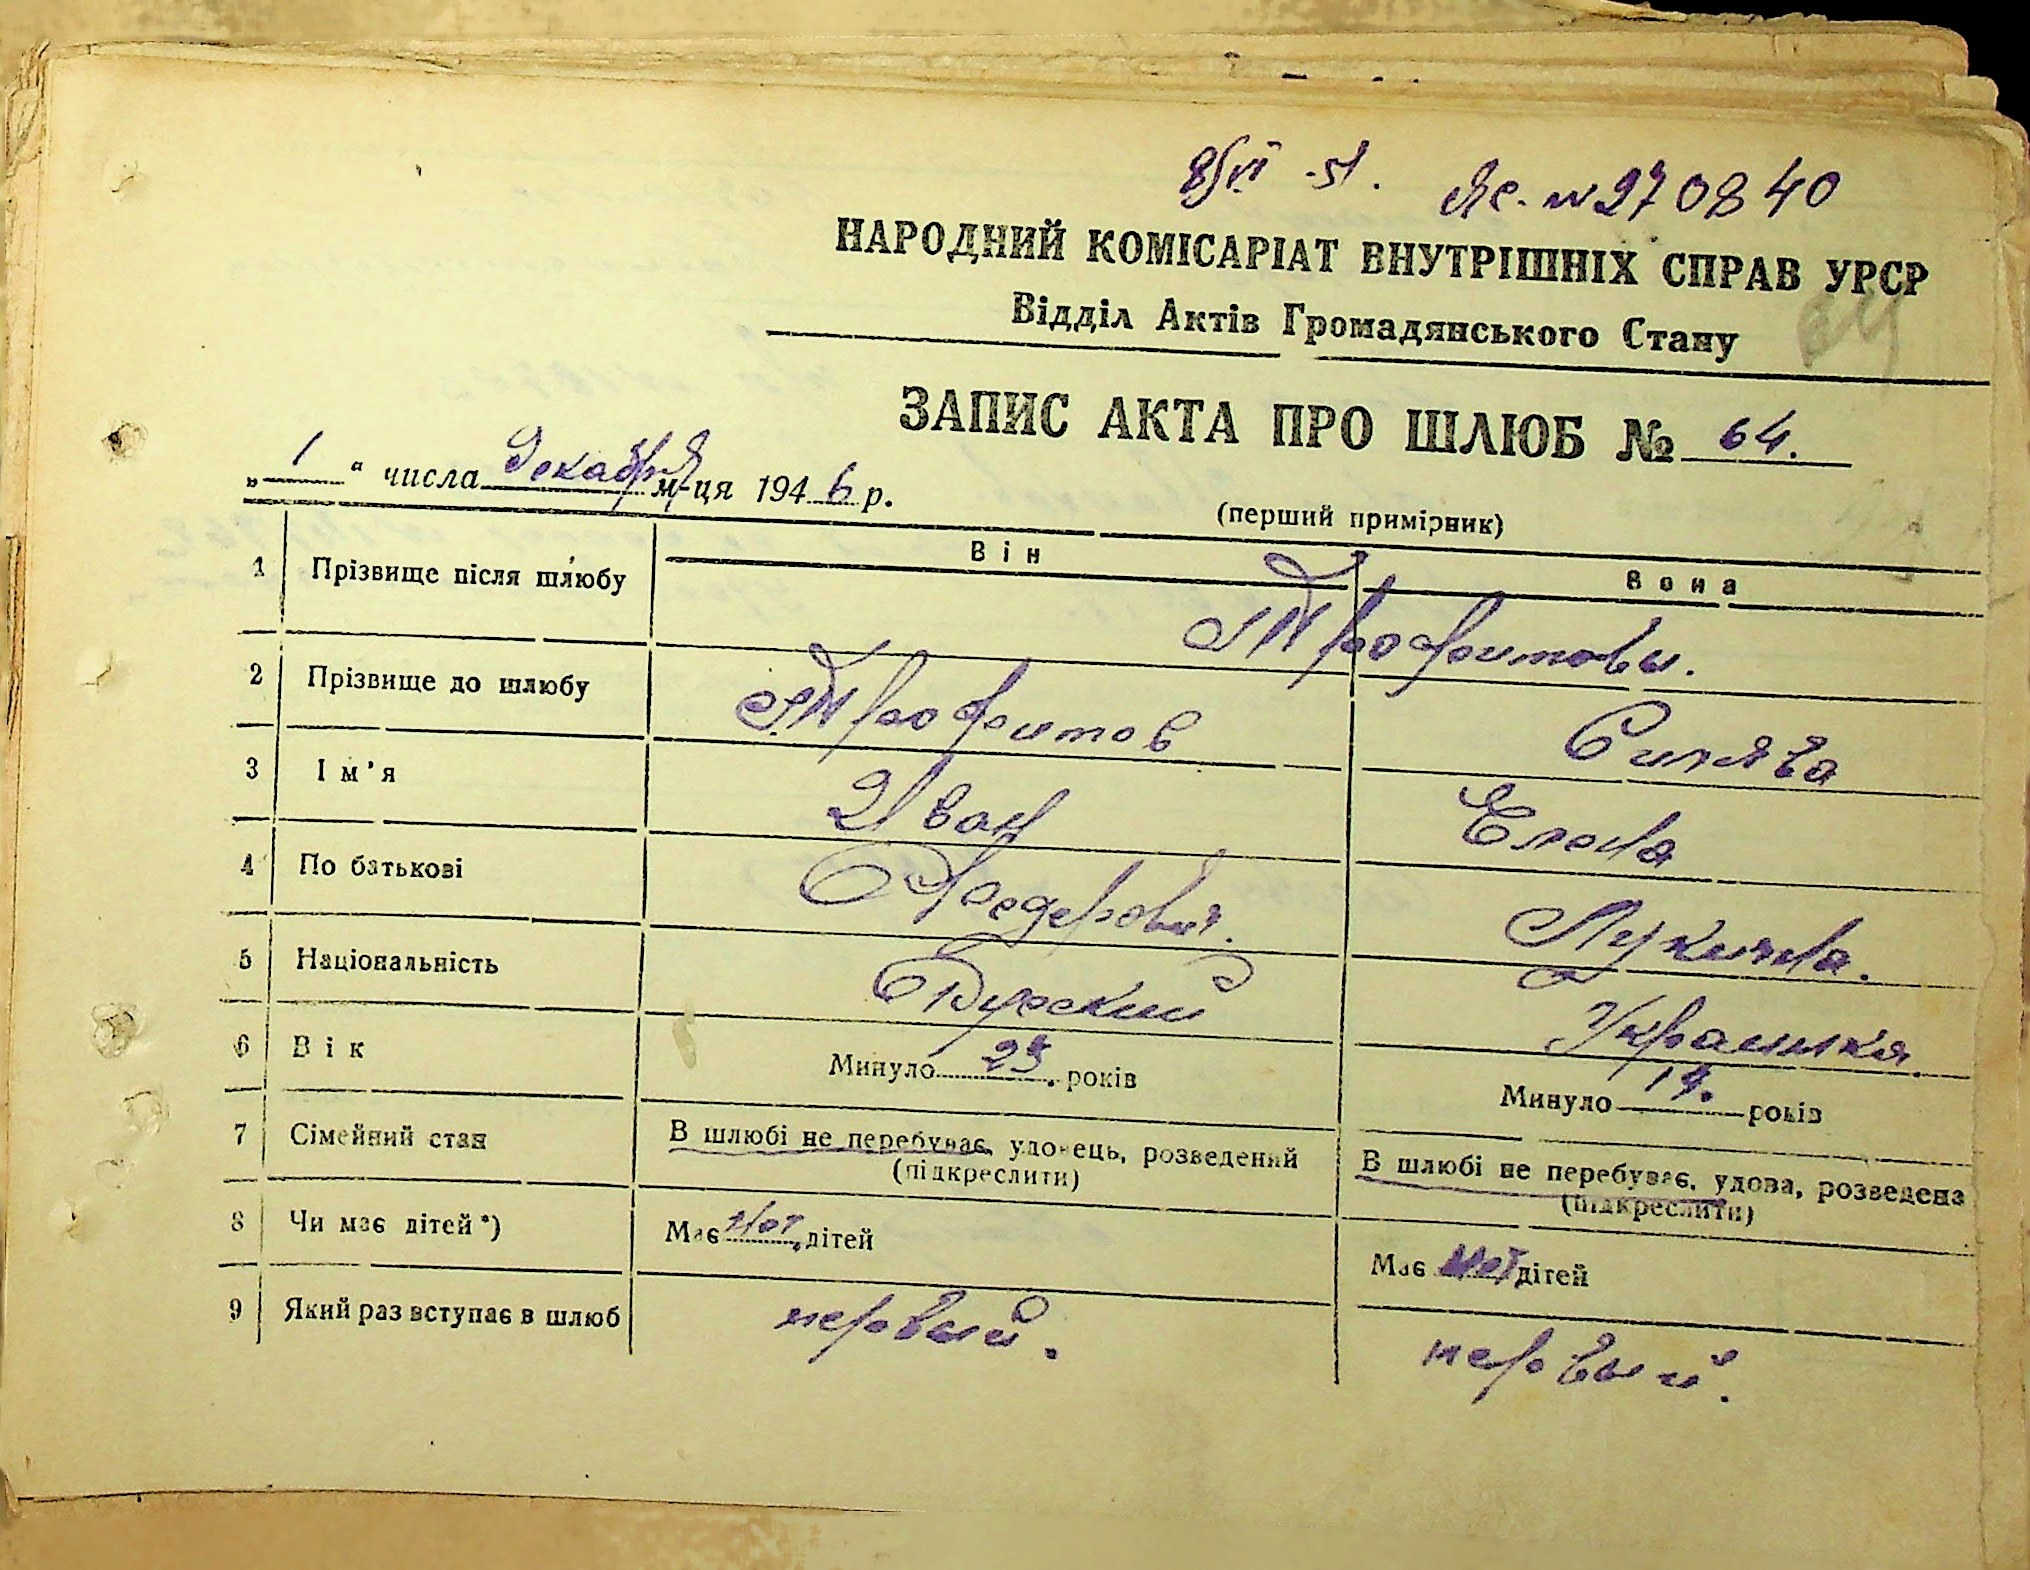 8/VI -51. ЯС. № 270840
НАРОДНИЙ КОМІСАРІАТ ВНУТРІШНІХ СПРАВ УРСР
Відділ Актів Громадянського Стану
64
ЗАПИС АКТА ПРО ШЛЮБ № 64.
„ 1 “ числа Декабря м-ця 1946 р.
(перший примірник)
Він Вона
1 Прізвище після шлюбу Трофимовы.
2 Прізвище до шлюбу Трофимов Синява
3 Ім'я Иван Елена
4 По батькові Федерович. Лукична.
5 Національність Русский Украинка.
6 Вік Минуло 23. років Минуло років
7 Сімейний стан В шлюбі не перебуває, удовець, розведений В шлюбі не перебуває, удова, розведена
(підкреслити) (підкреслити)
8 Чи має дітей*) Має нет. дітей Має нет дітей
9 Який раз вступає в шлюб первый. первый.